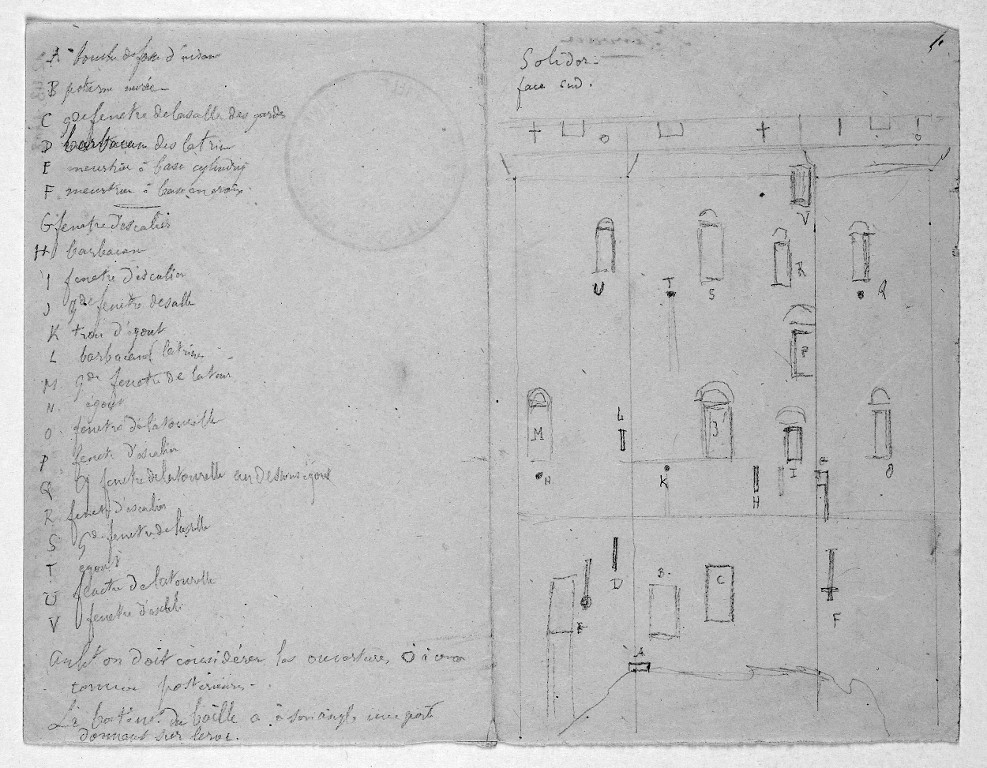 A bouche de fosse d'aisan
B poterne murée
C gde fenetre de la salle des gardes
D barbacan des latrin
E meurtrière à base cylindriq
F meurtrière à base en croix
G fenetre d'escalier
H barbacan
I fenetre d'escalier
J gde fenetre de salle
K trou d'égout
L barbacane latrine
M gde fenetre de la tour
N. égout
O fenetre de la tourelle
P fenetre d'escalier
Q fenetre de la tourelle au dessous égout
R fenetre d'escalier
S gde fenetre de la salle
T égout
U fenetre de la tourelle
V fenetre d'escalie
on doit considérer les ouvertures, O à
comme posterieures.
Le batimt du baille a à son angle une porte
donnant sur le roc.
Solidor.
face sud.
V
U
T
S
R
R
M
L
J
I
O
N
K
H
D
B
C
E
F
A